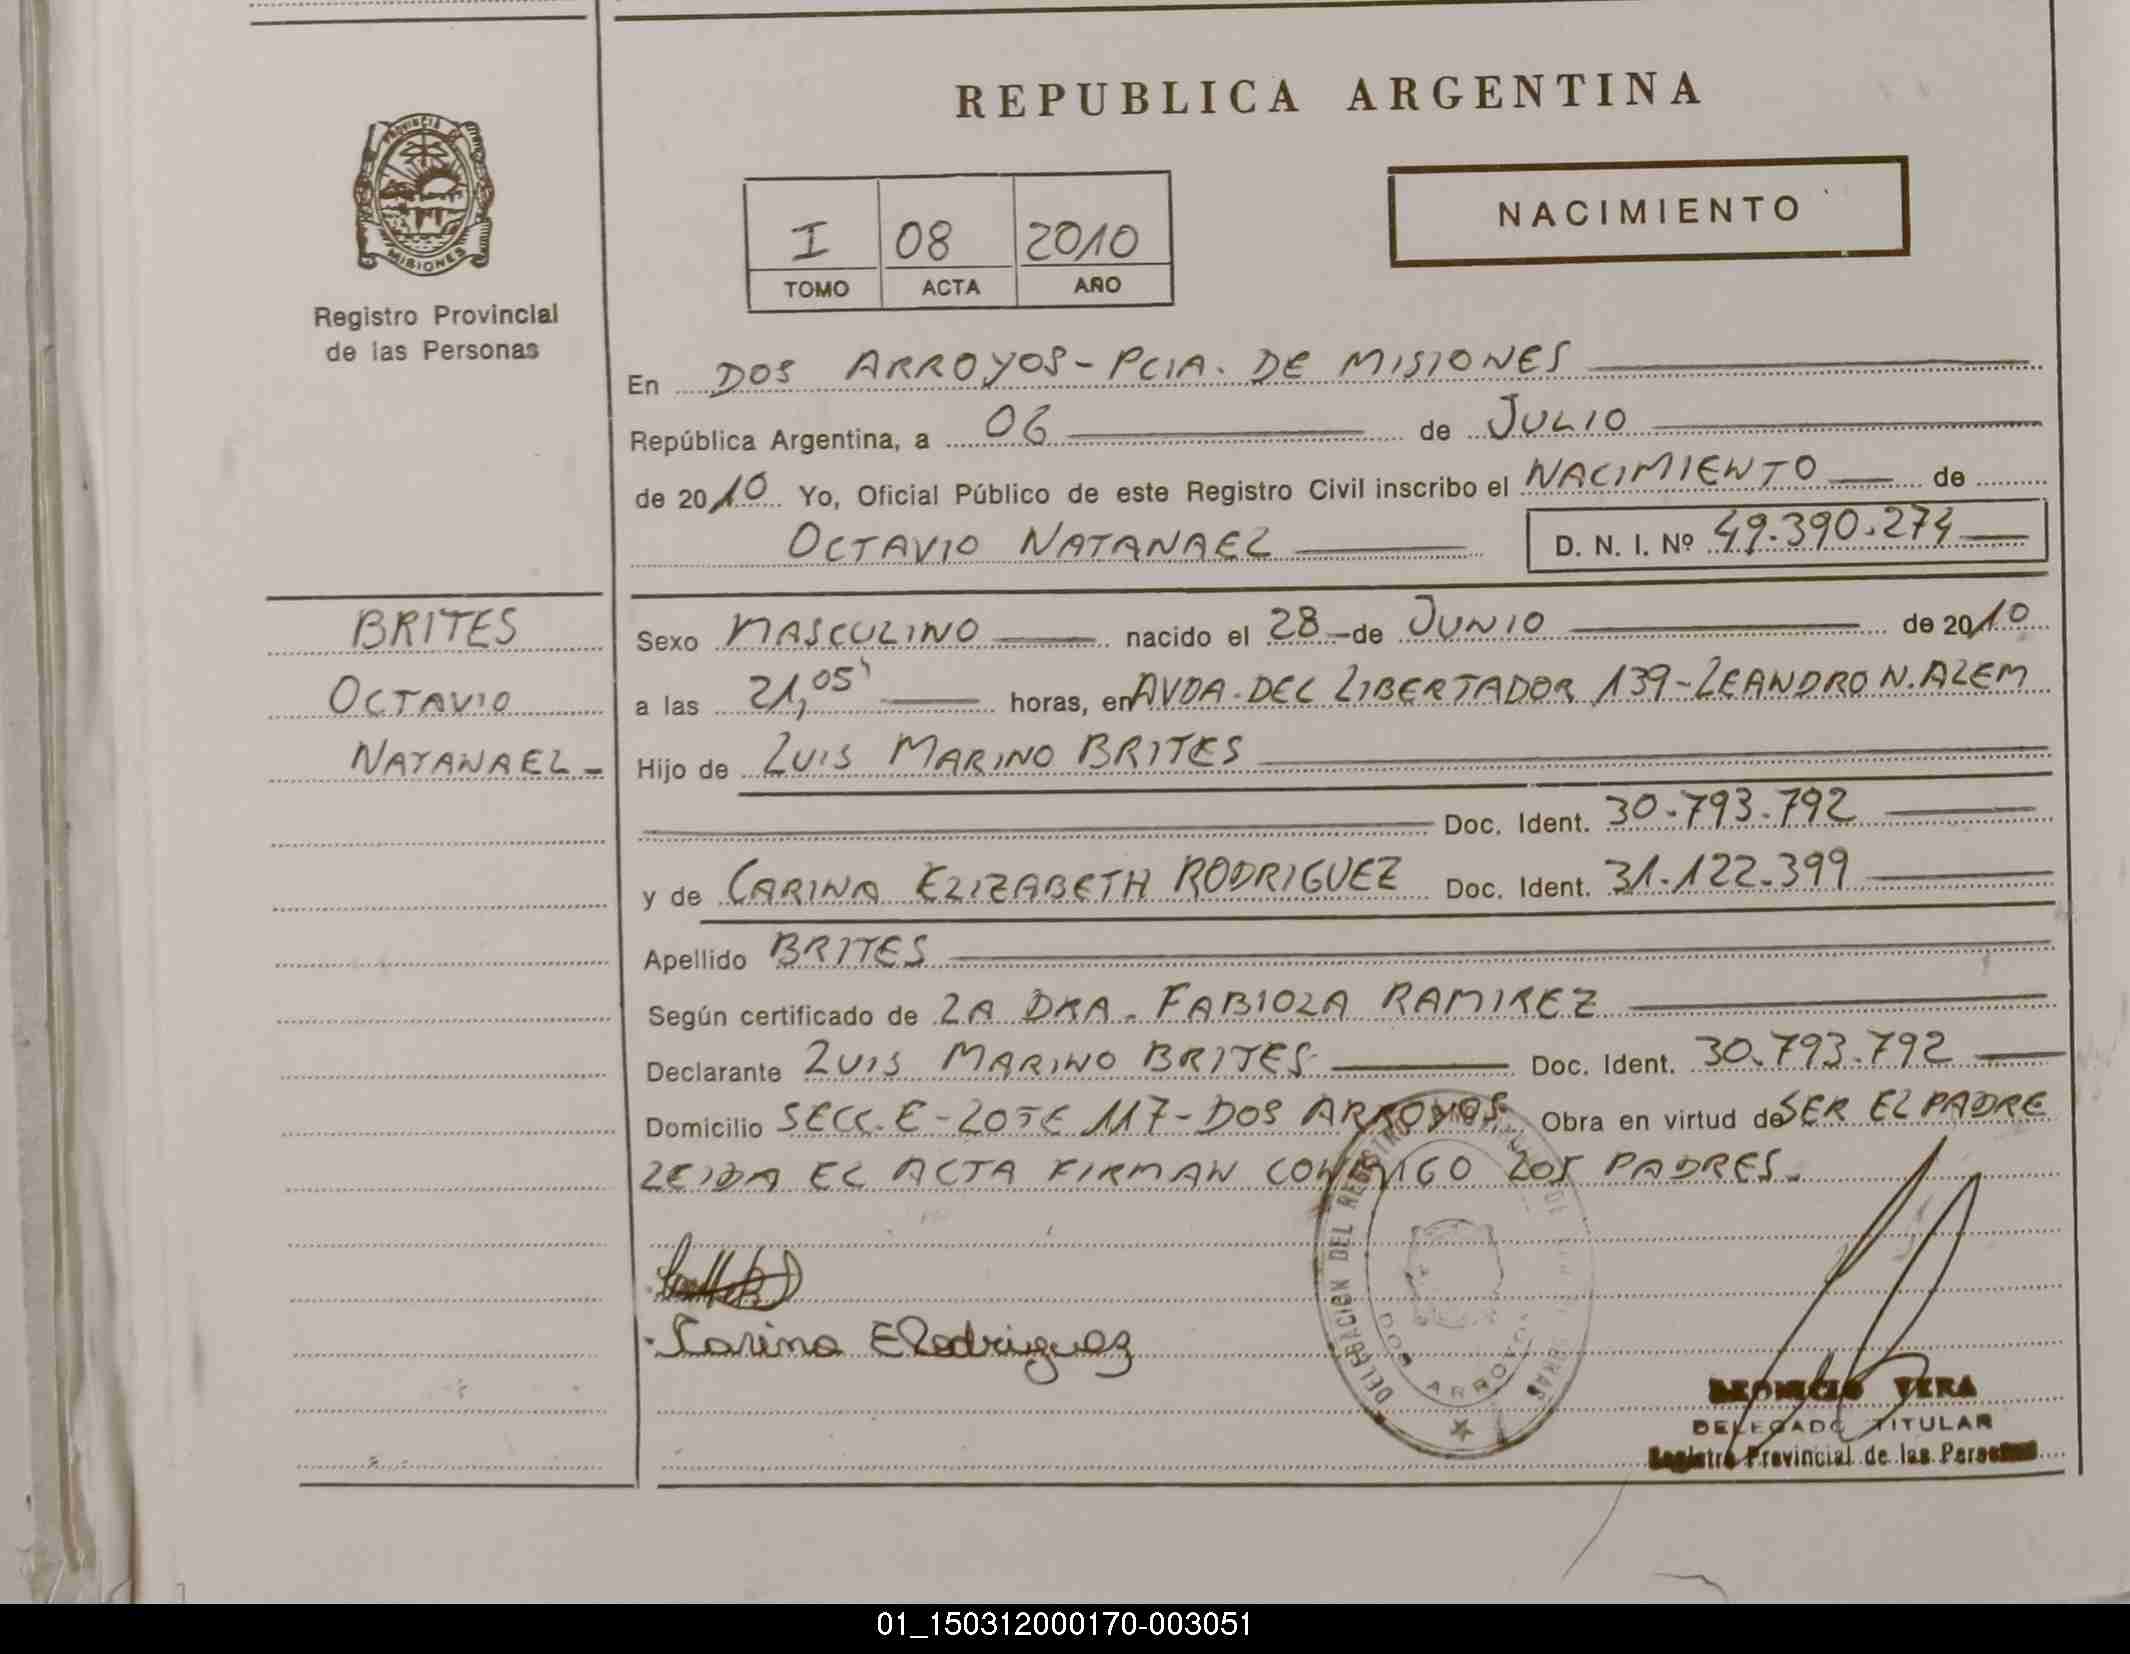 REPUBLICA ARGENTINA
PROVINCIA DE
MISIONES
Registro Provincial
de las Personas
I 08 2010
TOMO ACTA AÑO
NACIMIENTO
En DOS ARROYOS - PCIA. DE MISIONES
República Argentina, a 06 de JULIO
de 2010 Yo, Oficial Público de este Registro Civil inscribo el NACIMIENTO de
OCTAVIO NATANAEL D. N. I. Nº 49.390.274
BRITES
OCTAVIO
NATANAEL -
Sexo MASCULINO nacido el 28 de JUNIO de 2010
a las 21,05' horas, en AVDA. DEL LIBERTADOR 139 - LEANDRO N. ALEM
Hijo de LUIS MARINO BRITES
Doc. Ident. 30.793.792
y de CARINA ELIZABETH RODRIGUEZ Doc. Ident. 31.122.399
Apellido BRITES
Según certificado de LA DRA. FABIOLA RAMIREZ
Declarante LUIS MARINO BRITES Doc. Ident. 30.793.792
Domicilio SECC. E - LOTE 117 - DOS ARROYOS Obra en virtud de SER EL PADRE
LEIDA EL ACTA FIRMAN CONMIGO LOS PADRES.
Carina E Rodriguez
DELEGACION DEL REGISTRO
DOS ARROYOS
VERA
DELEGADO TITULAR
Registro Provincial de las Personas
01_150312000170-003051